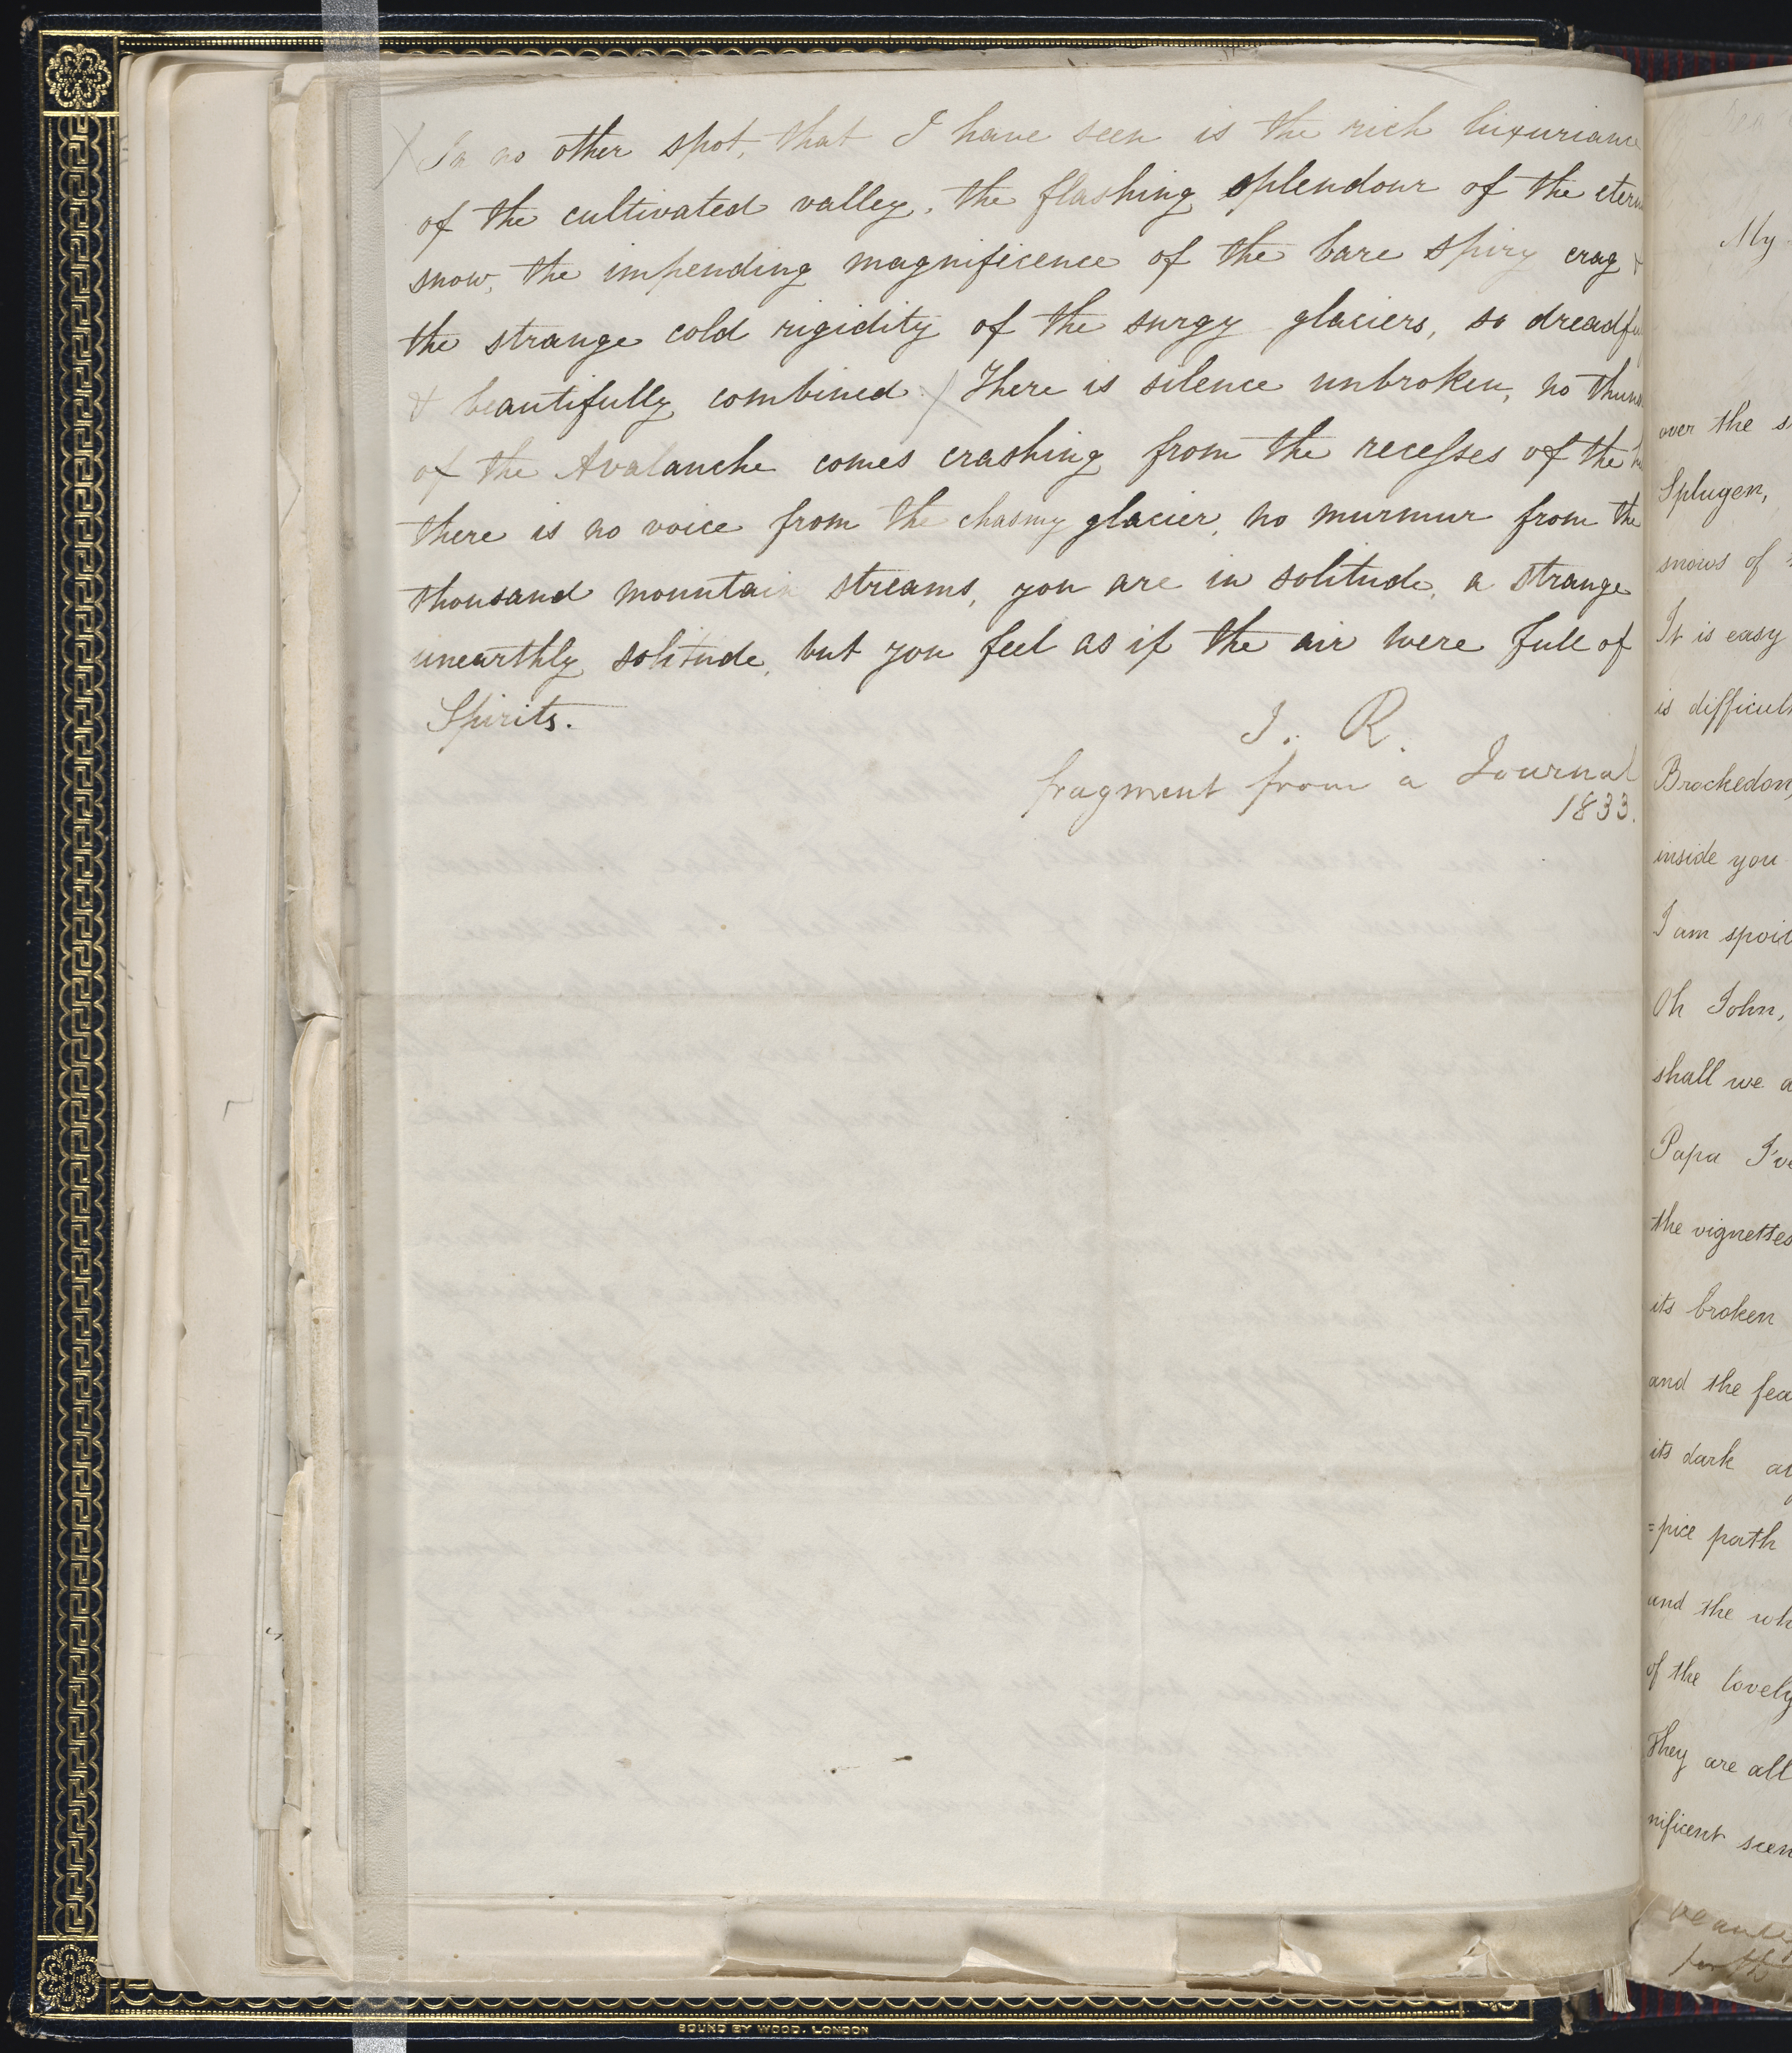 In no other spot, that I have seen is the rich luxuriance
of the cultivated valley, the flashing splendour of the etern
snow, the impending magnificence of the bare spiry crag &
the strange cold rigidity of the surgy glaciers, so dreadfu
& beautifully combined.) There is silence unbroken, no thun
of the Avalanche comes crashing from the recesses of the
there is no voice from the chasmy glacier, no murmur from the
thousand mountain streams, you are in solitude, a strange
unearthly solitude, but you feel as if the air were full of
Spirits.
J. R.
fragment from a Journal
1833.
My
over the s
Splugen,
snows of
It is easy
is difficult
Brockedon,
inside you
I am spoil
Oh John,
shall we a
Papa I've
the vignettes
its broken
and the fea
its dark a
=pice path
and the wh
of the lovely
They are all
nificent scen
BOUND BY WOOD. LONDON